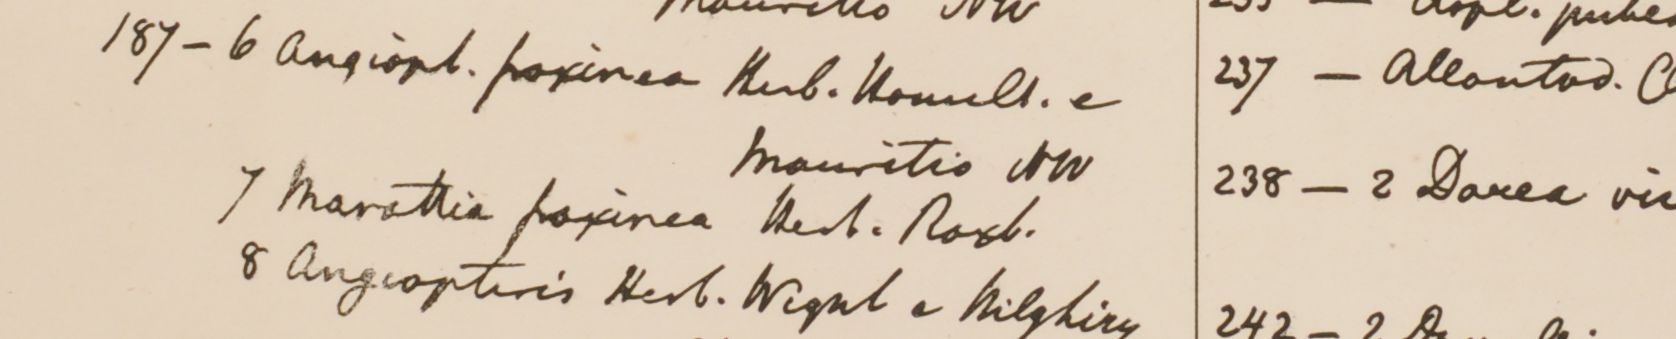 Mauritio NW
187 – 6 Angiopt. fraxinea Herb. Hamilt. e
Mauritio NW
7 Marattia fraxinea Herb. Roxb.
8 Angiopteris Herb. Wight e Nilghiry
237 – Allantod.
238 – 2 Darea
242 – 2